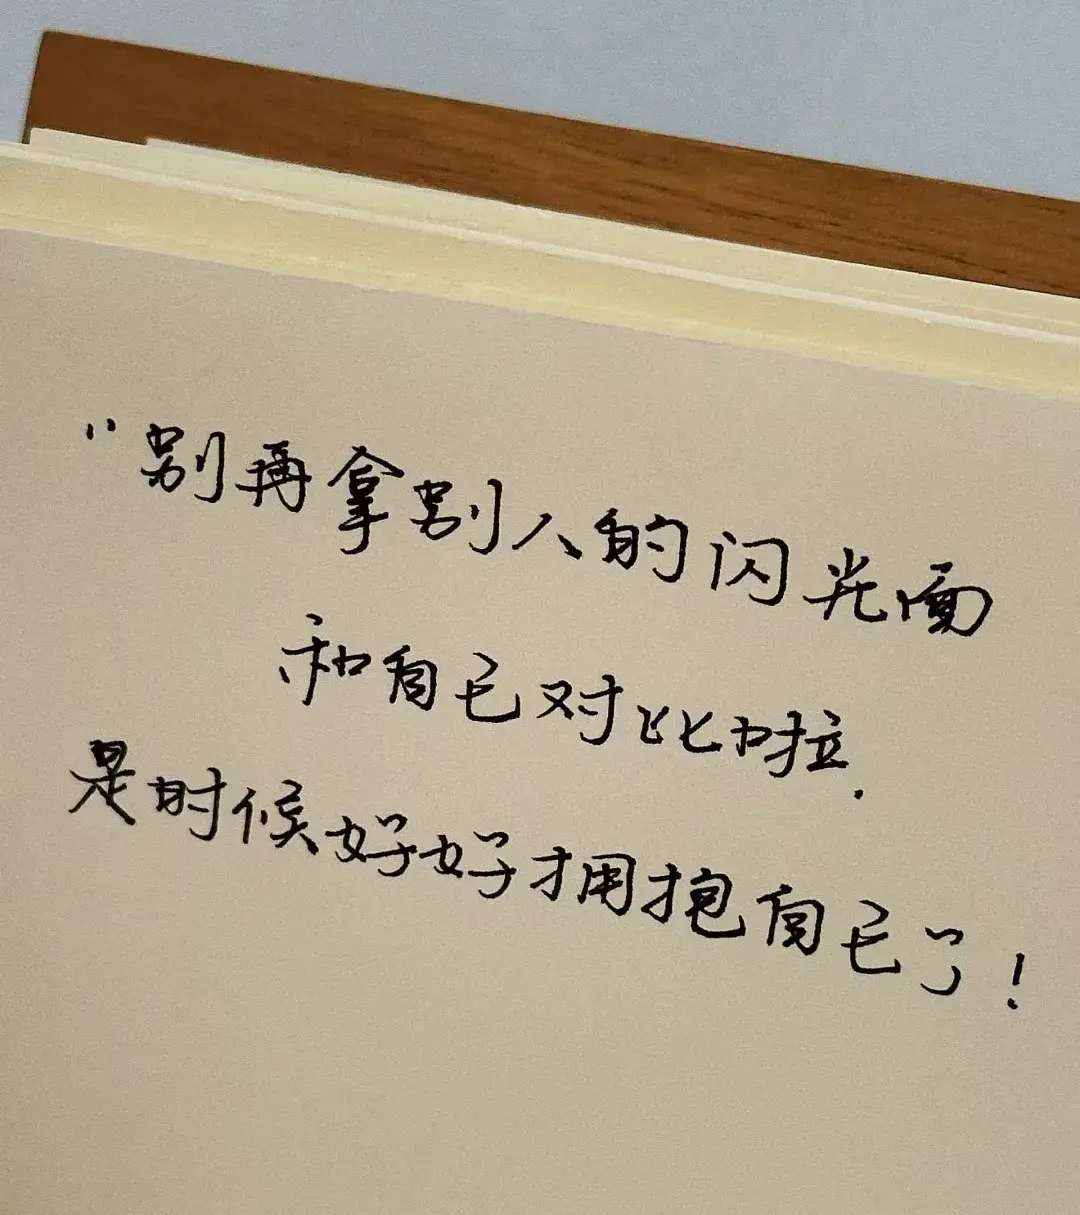 "别再拿别人的闪光面
和自己对比啦.
是时候好好拥抱自己了!